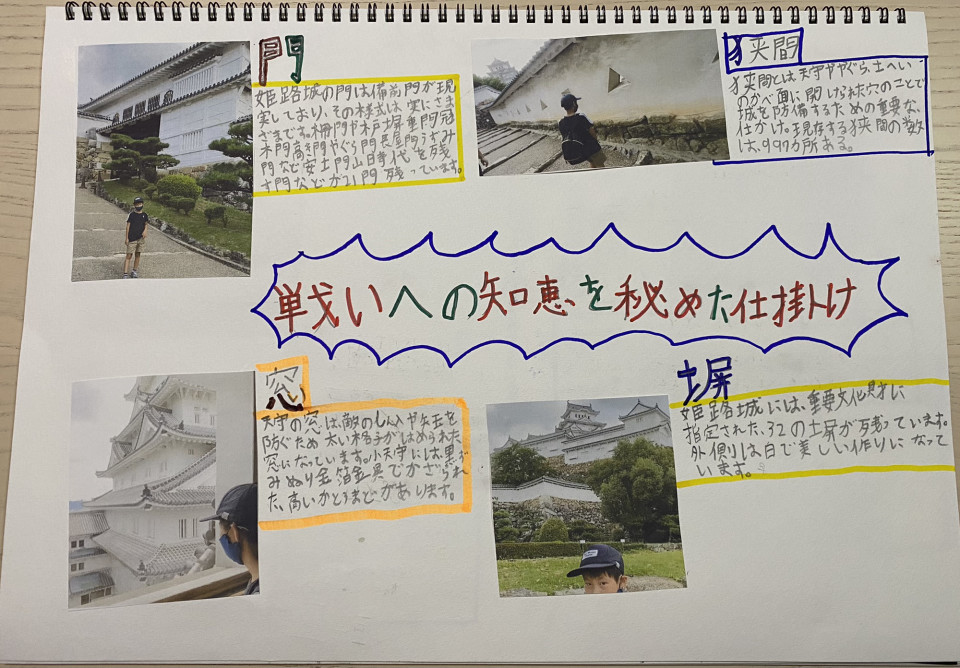 門
姫路城の門は備前門が現
実しており、その様式は実にさま
ざまです。棟門や木戸塀重門冠
木門高き門やぐら門長屋門うずみ
門など安土門山日時代を残
す門などが21門残っています。
狭間
狭間とは天守ややぐら、土へい
のかべ面に開けられた穴のことで
城を防備するための重要な、
仕かけ。現存する狭間の数
は、997カ所ある。
戦いへの知恵を秘めた仕掛け
窓
天守の窓は、敵のしん入や矢玉を
防ぐため太い格子がはめられた
窓になっています。小天守には、黒ず
みぬり金箔金具でかざられ
た、高いかとうまどがあります。
塀
姫路城には、重要文化財に
指定された、32の土塀が残っています。
外側は白で美しい作りになって
います。